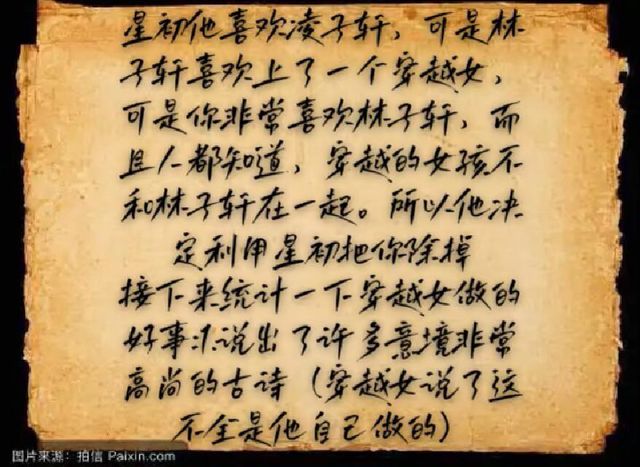 星初他喜欢凌子轩，可是林
子轩喜欢上了一个穿越女，
可是你非常喜欢林子轩，而
且人都知道，穿越的女孩不
和林子轩在一起。所以他决
定利用星初把你除掉
接下来统计一下穿越女做的
好事儿说出了许多意境非常
高尚的古诗（穿越女说了这
不全是他自己做的）
图片来源：拍信 Paixin.com